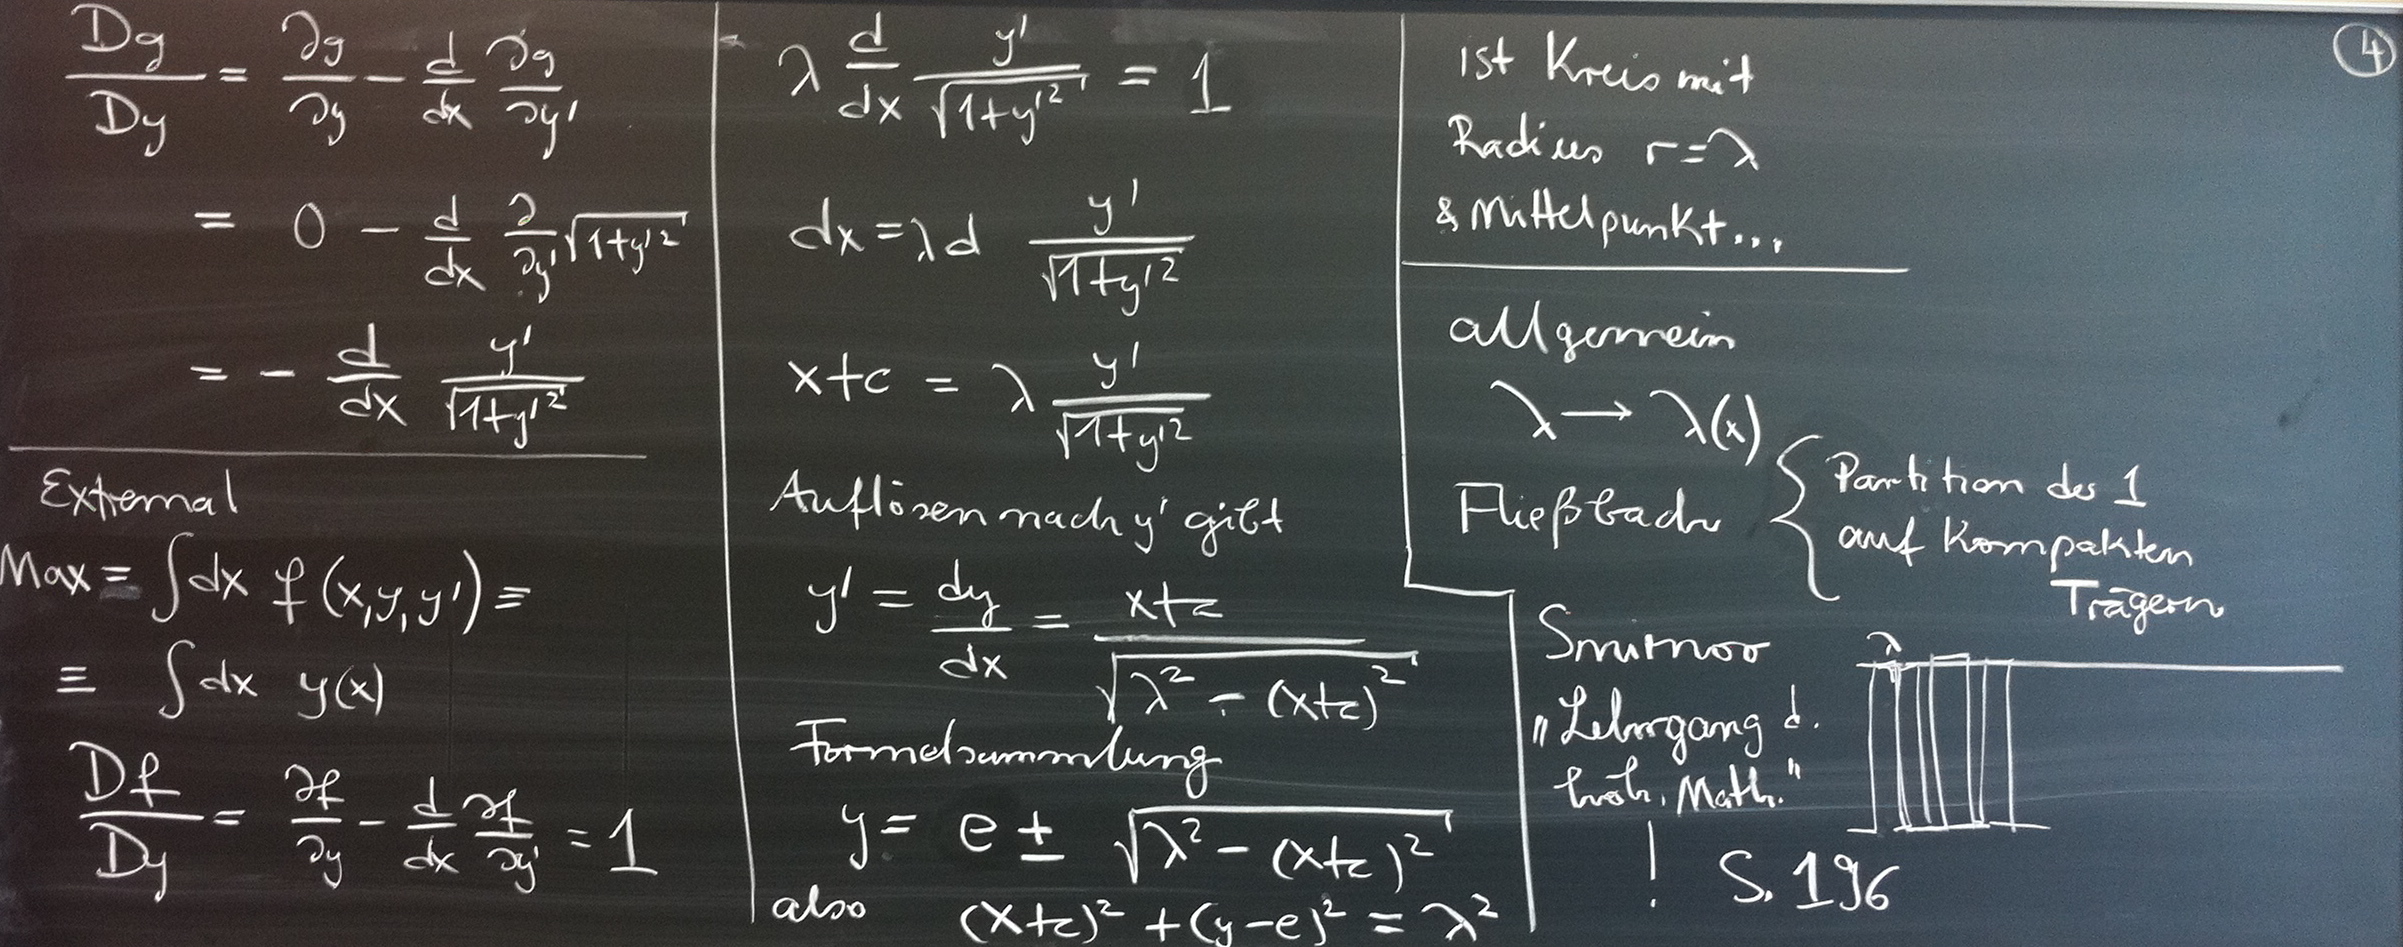 Dg/Dy = ∂g/∂y − d/dx ∂g/∂y'
= 0 − d/dx ∂/∂y' √(1+y'²)
= − d/dx y'/√(1+y'²)
Extremal
Max = ∫dx f(x,y,y') =
≡ ∫dx y(x)
Df/Dy = ∂f/∂y − d/dx ∂f/∂y' = 1
λ d/dx y'/√(1+y'²) = 1
dx = λ d y'/√(1+y'²)
x+c = λ y'/√(1+y'²)
Auflösen nach y' gibt
y' = dy/dx = x+c/√(λ² − (x+c)²)
Formelsammlung
y = e ± √(λ² − (x+c)²)
also (x+c)² + (y−e)² = λ²
④
ist Kreis mit
Radius r=λ
& Mittelpunkt...
allgemein
λ → λ(x)
Fließbach { Partition der 1
auf kompakten
Trägern
Smirnov
"Lehrgang d.
höh. Math."
! S. 196
λ